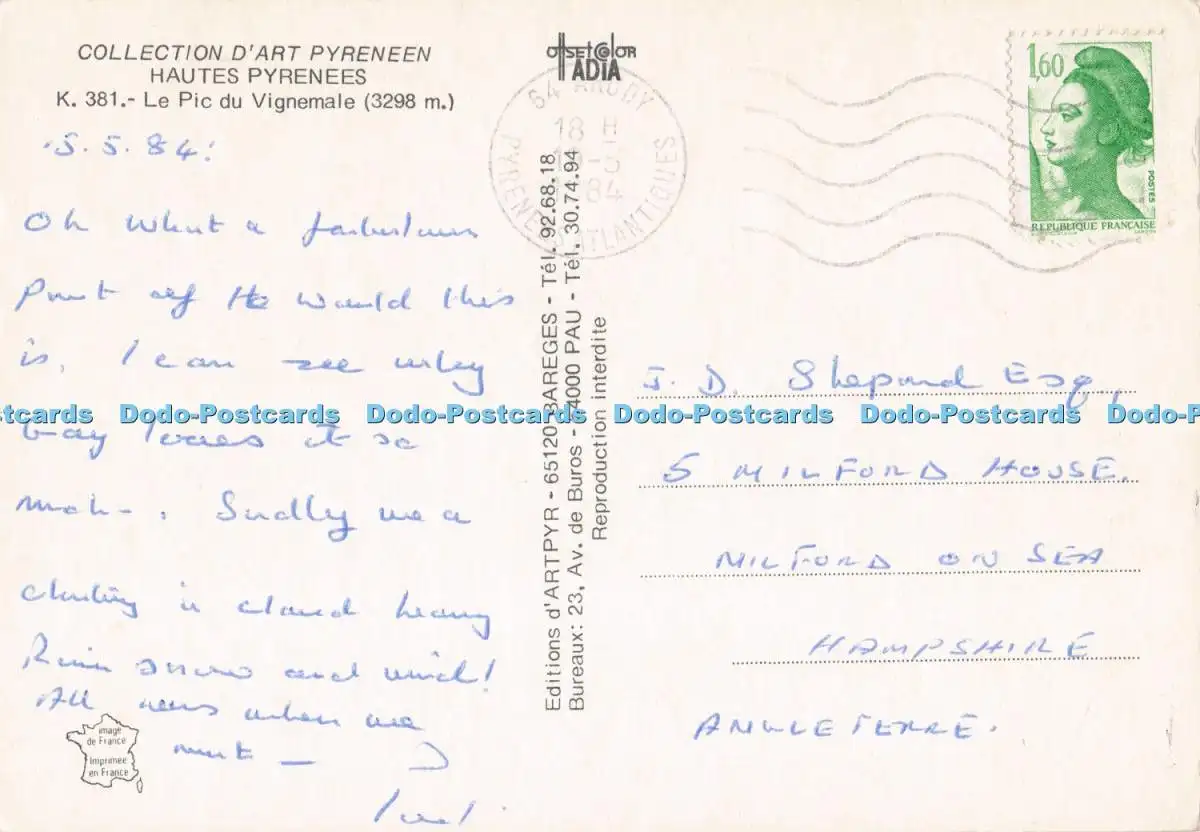 COLLECTION D'ART PYRENEEN
HAUTES PYRENEES
K. 381.- Le Pic du Vignemale (3298 m.)
5.5.84.
Oh what a fabulous
Part of the World this
is, I can see why
loves it so
much. Sadly we
in cloud heavy
Rain snow and wind!
All news when we
meet —
offset color
ADIA
64 ARUDY
18 H
84
PYRENEES ATLANTIQUES
1,60
POSTES
REPUBLIQUE FRANÇAISE
Editions d'ARTPYR - 65120 BAREGES - Tél. 92.68.18
Bureaux: 23, Av. de Buros - 64000 PAU - Tél. 30.74.94
Reproduction interdite
J. D. Shepard Esq,
5 MILFORD HOUSE.
MILFORD ON SEA
HAMPSHIRE
ANGLETERRE.
image
de France
Imprimée
en France
Dodo-Postcards Dodo-Postcards Dodo-Postcards Dodo-Postcards